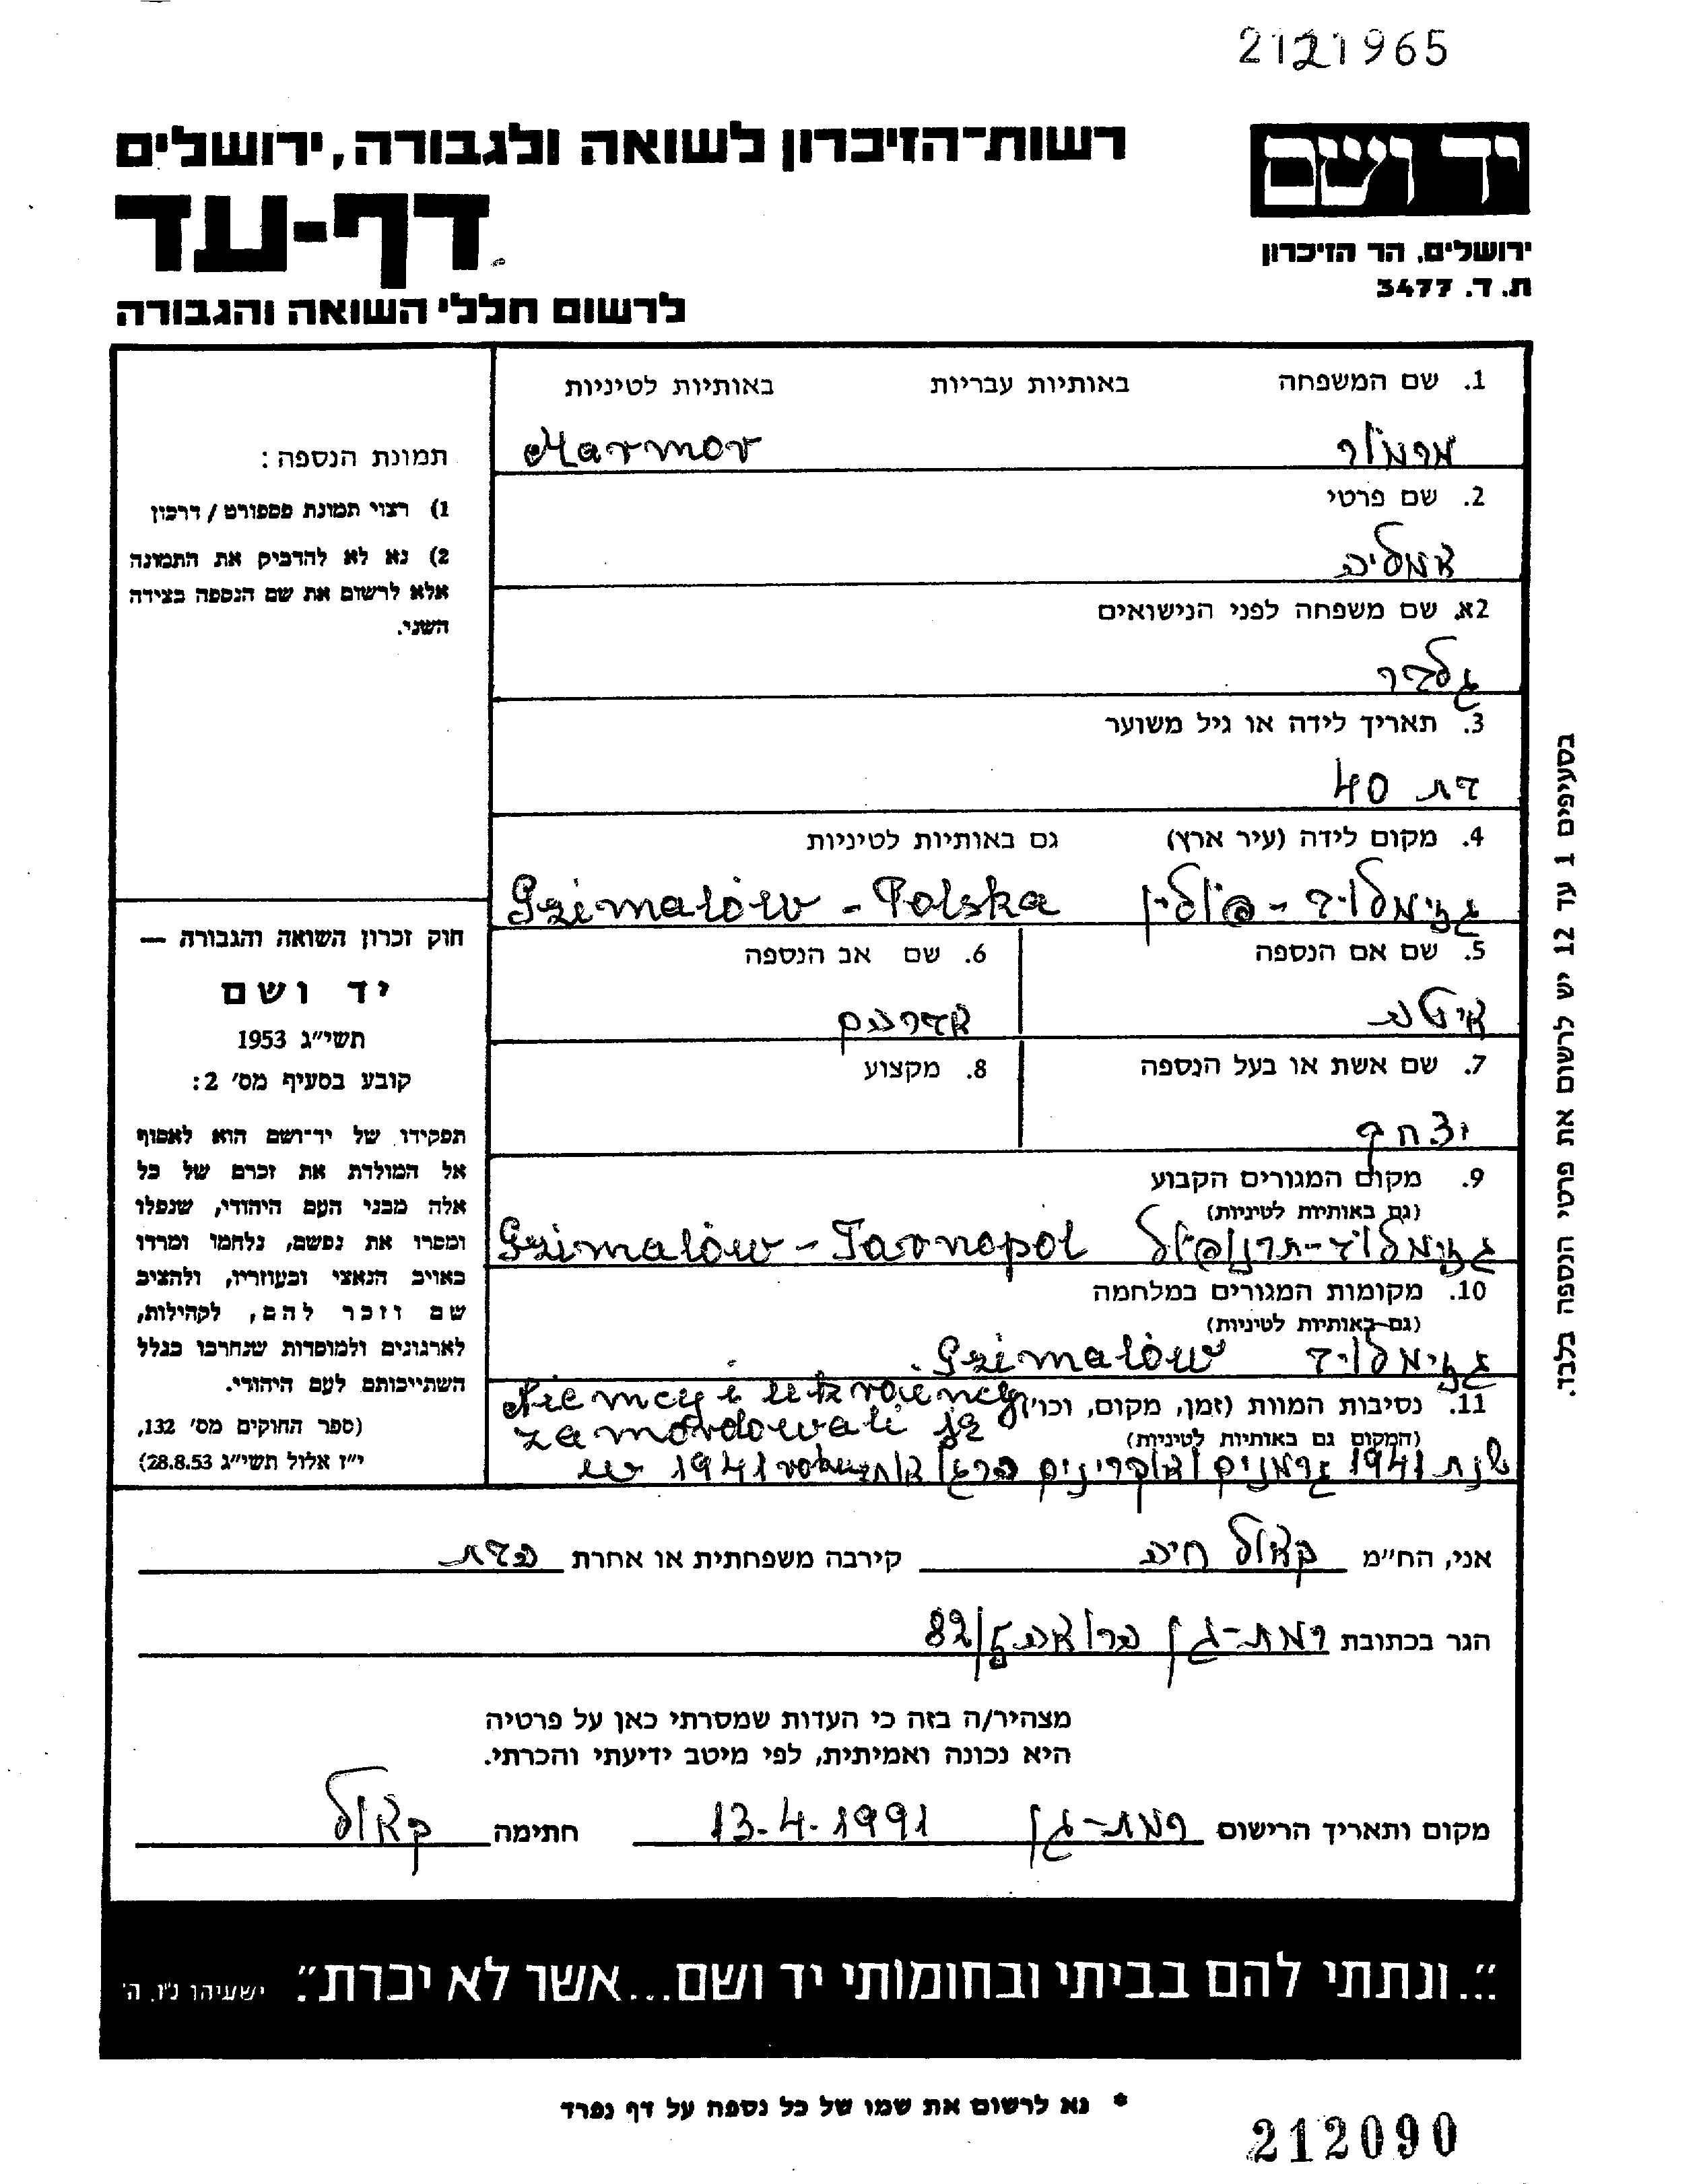 2121965
יד ושם
ירושלים, הר הזיכרון
ת. ד. 3477
רשות-הזיכרון לשואה ולגבורה, ירושלים
דף-עד
לרשום חללי השואה והגבורה
1. שם המשפחה באותיות עבריות באותיות לטיניות
מרמור Marmor
2. שם פרטי
אמליה
2א. שם משפחה לפני הנישואים
גלבר
3. תאריך לידה או גיל משוער
בת 40
4. מקום לידה (עיר ארץ) גם באותיות לטיניות
גזימלוב - פולין Gzimałów - Polska
5. שם אם הנספה 6. שם אב הנספה
איטה אברהם
7. שם אשת או בעל הנספה 8. מקצוע
יצחק
9. מקום המגורים הקבוע
(גם באותיות לטיניות)
גזימלוב-תרנופול Gzimałów - Tarnopol
10. מקומות המגורים במלחמה
(גם באותיות לטיניות)
גזימלוב Gzimałów
11. נסיבות המוות (זמן, מקום, וכו') Niemcy i ukraińcy
(המקום גם באותיות לטיניות) zamordowali ją
שנת 1941 גרמנים ואוקרינים הרגו אותה w 1941 roku
תמונת הנספה:
1) רצוי תמונת פספורט / דרכון
2) נא לא להדביק את התמונה
אלא לרשום את שם הנספה בצידה
השני.
חוק זכרון השואה והגבורה —
יד ושם
תשי״ג 1953
קובע בסעיף מס' 2:
תפקידו של יד-ושם הוא לאסוף
אל המולדת את זכרם של כל
אלה מבני העם היהודי, שנפלו
ומסרו את נפשם, נלחמו ומרדו
באויב הנאצי ובעוזריו, ולהציב
שם וזכר להם, לקהילות,
לארגונים ולמוסדות שנחרבו בגלל
השתייכותם לעם היהודי.
(ספר החוקים מס' 132,
י״ז אלול תשי״ג 28.8.53)
בסעיפים 1 עד 12 יש לרשום את פרטי הנספה בלבד.
אני, הח״מ קאול חיה קירבה משפחתית או אחרת הבת
הגר בכתובת רמת-גן הרואה 82
מצהיר/ה בזה כי העדות שמסרתי כאן על פרטיה
היא נכונה ואמיתית, לפי מיטב ידיעתי והכרתי.
מקום ותאריך הרישום רמת-גן 13.4.1991 חתימה קאול
״...ונתתי להם בביתי ובחומותי יד ושם...אשר לא יכרת״. ישעיהו נ״ו, ה'
* נא לרשום את שמו של כל נספה על דף נפרד
212090